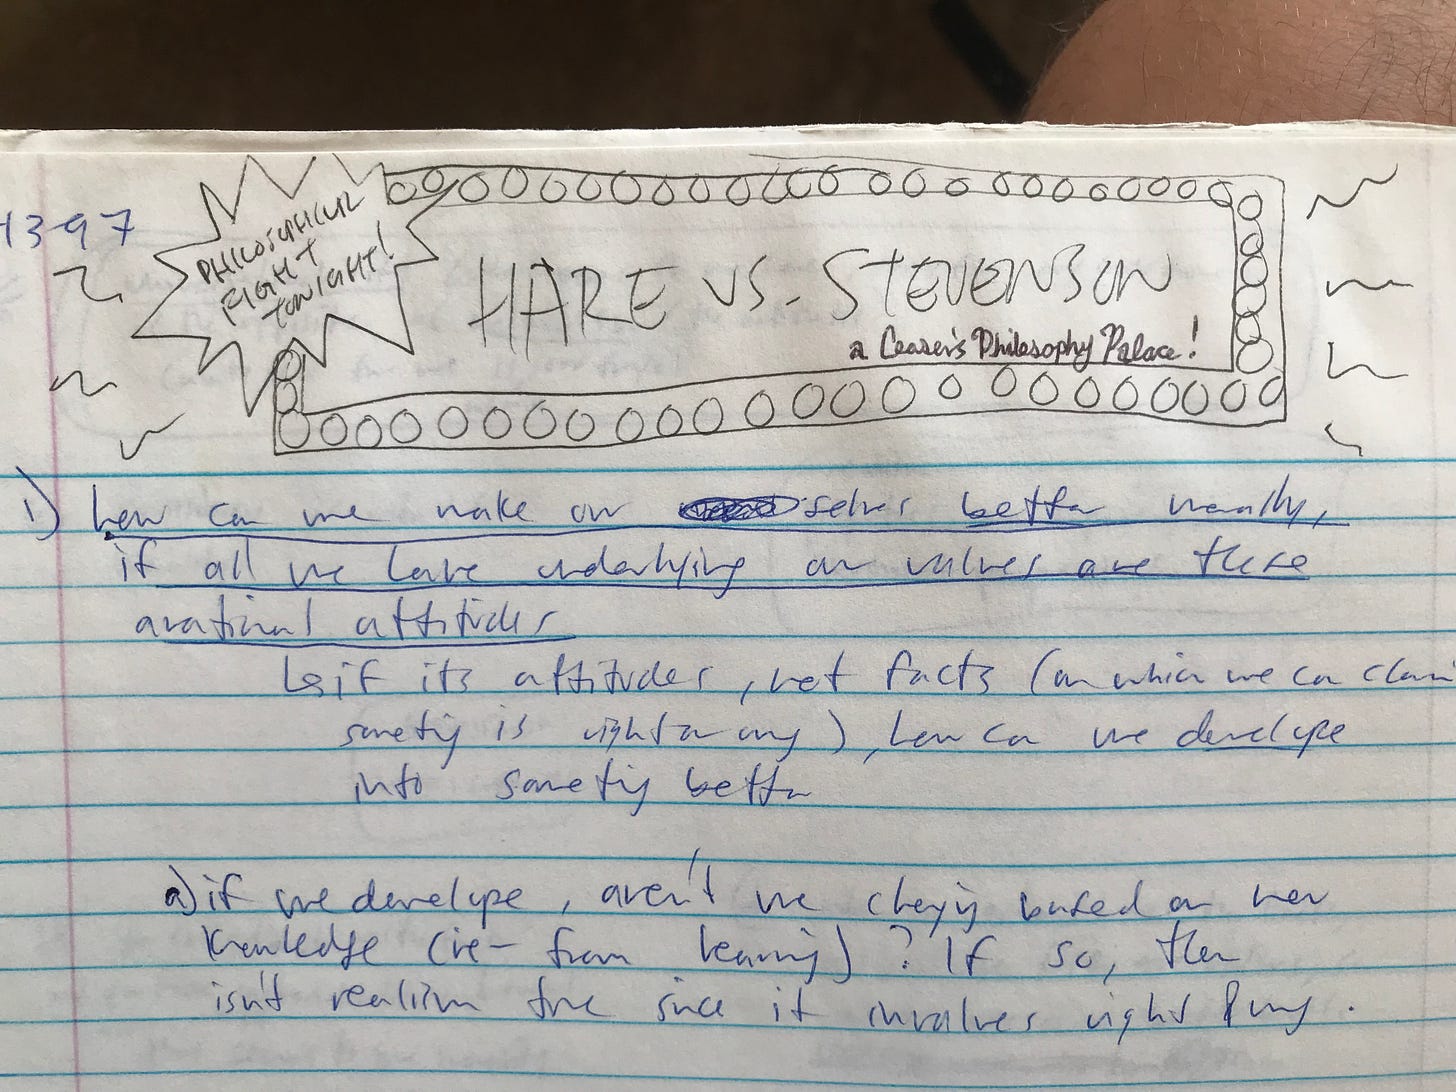 1397
PHILOSOPHICAL
FIGHT
TONIGHT!
HARE VS. STEVENSON
a Ceaser's Philosophy Palace!
1) how can we make our selves better morally,
if all we have underlying our values are these
arational attitudes
if its attitudes, not facts (on which we can claim
something is right or wrong), how can we develope
into something better
a) if we develope, aren't we changing based on new
knowledge (ie - from learning)? If so, then
isn't realism true since it involves right & wrong.